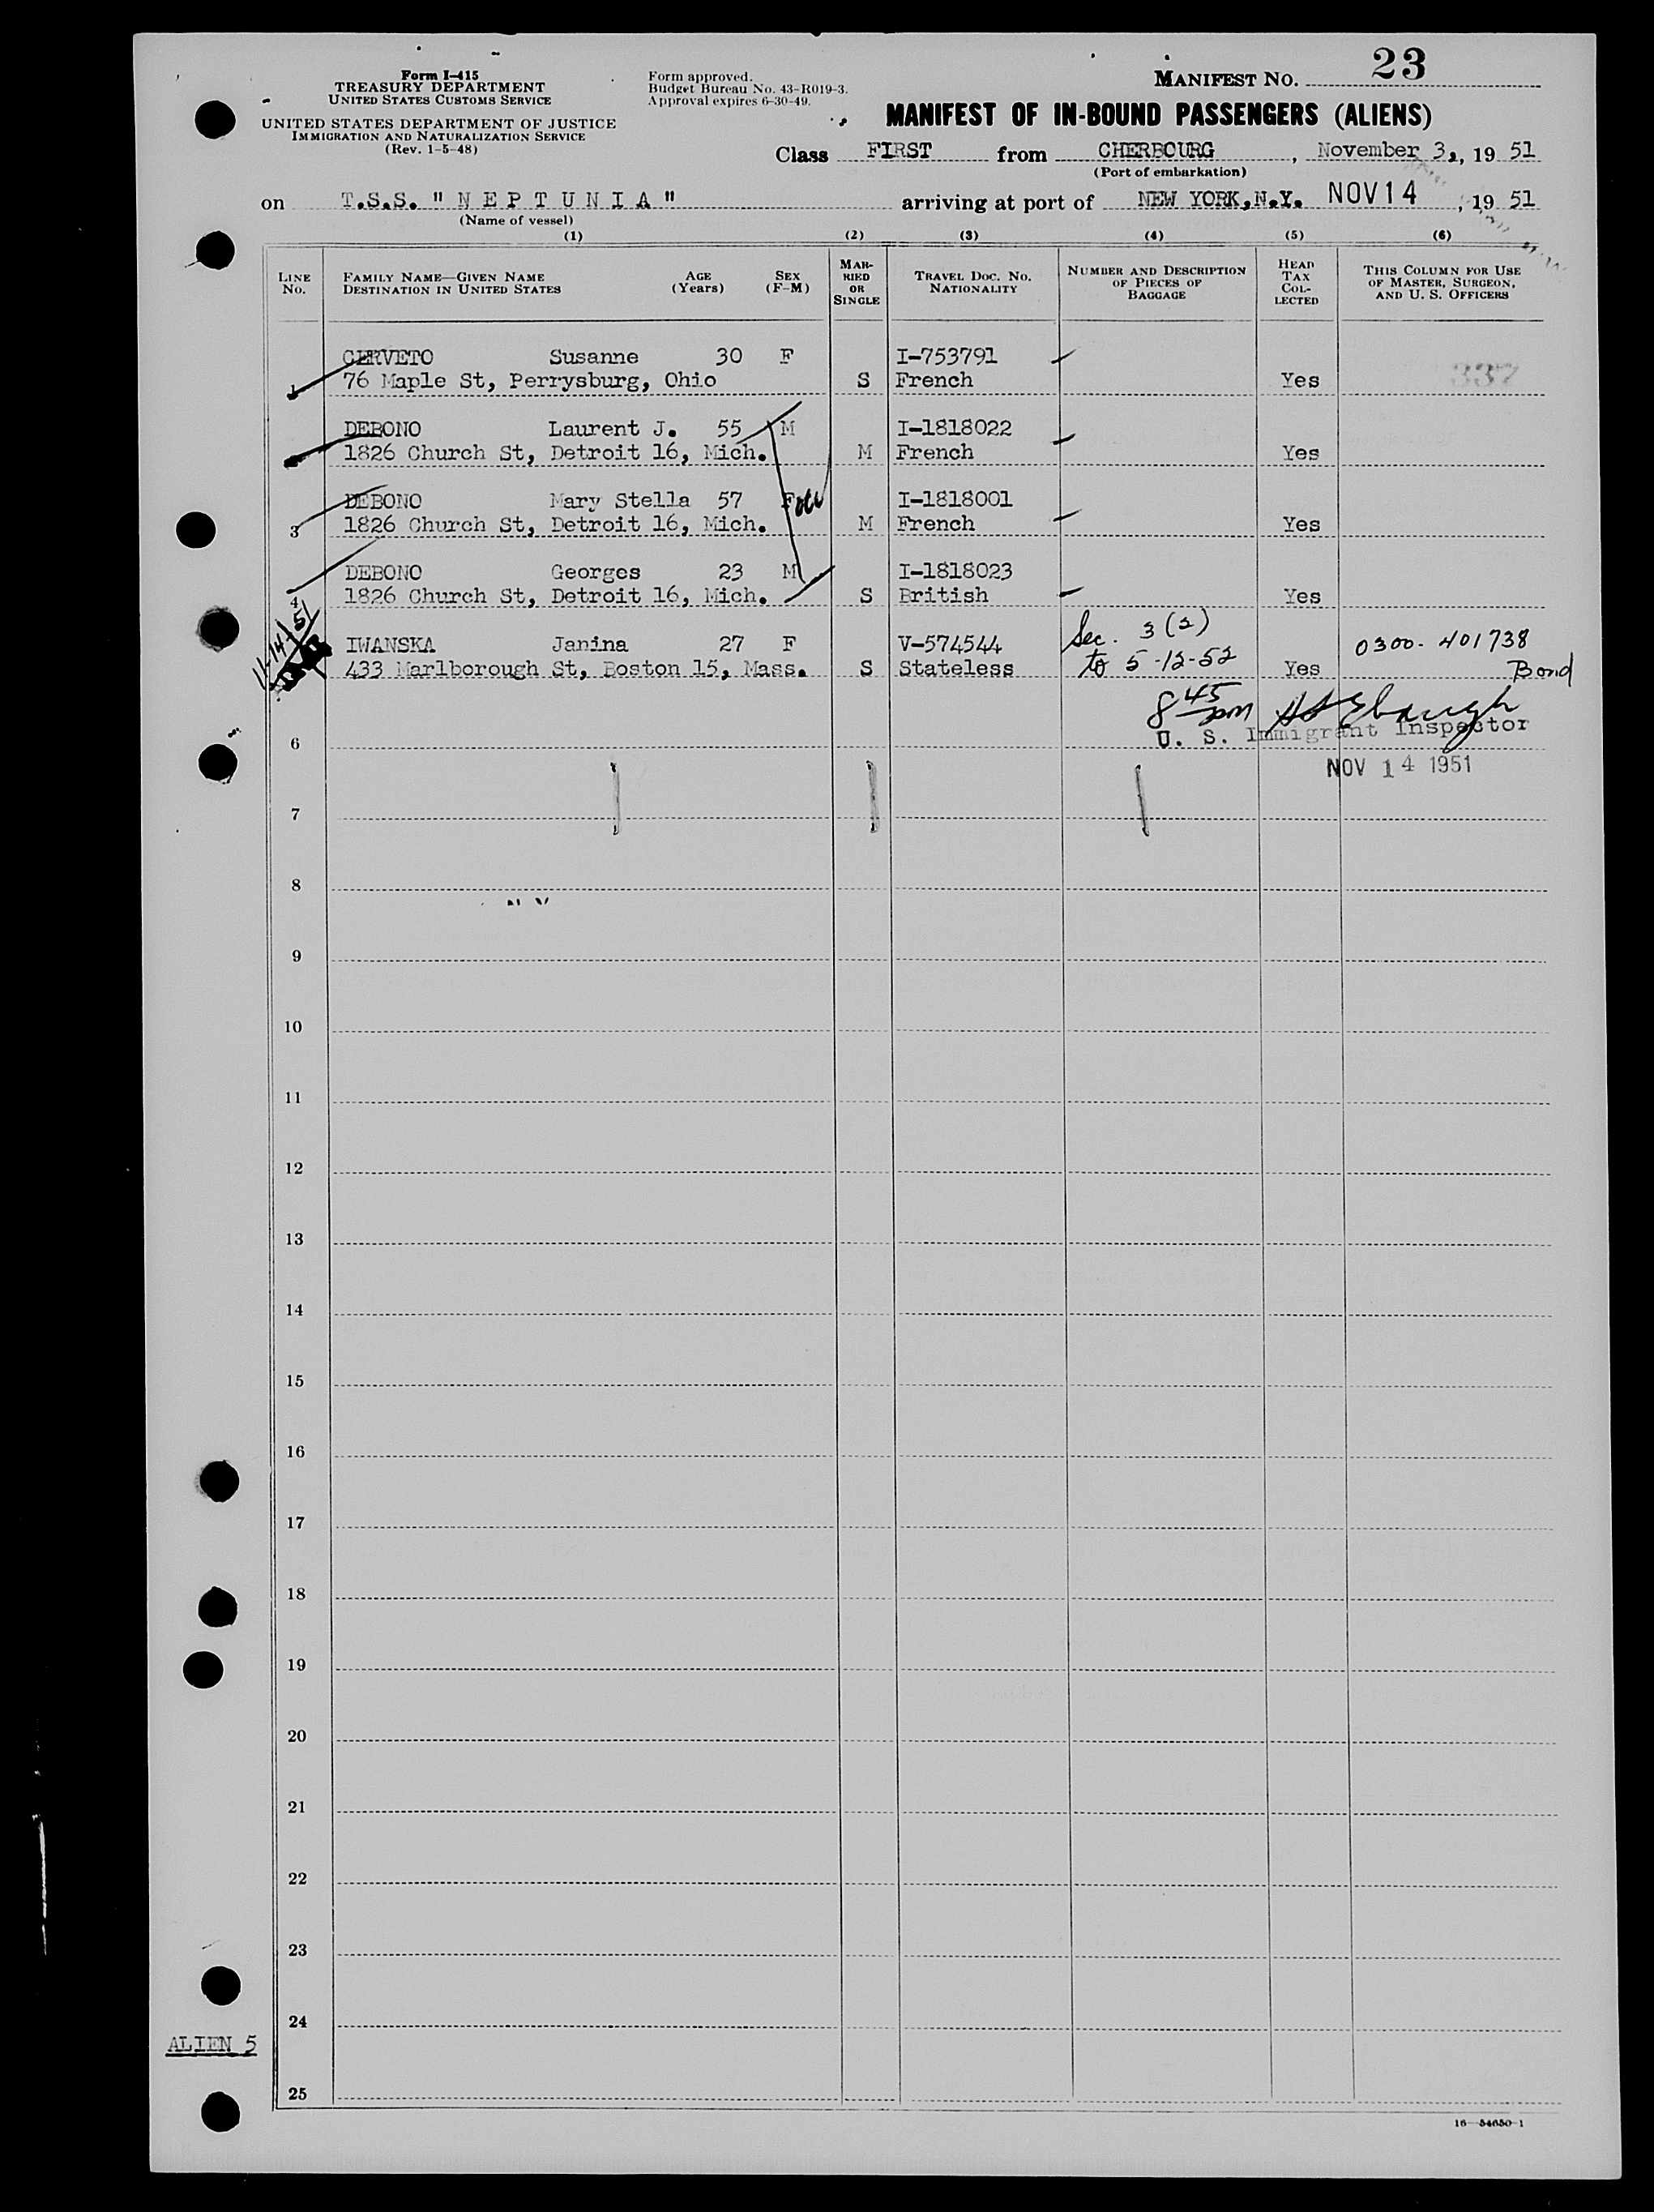 Form I-415
TREASURY DEPARTMENT
UNITED STATES CUSTOMS SERVICE
UNITED STATES DEPARTMENT OF JUSTICE
IMMIGRATION AND NATURALIZATION SERVICE
(Rev. 1-5-48)
Form approved.
Budget Bureau No. 43-R019-3.
Approval expires 6-30-49.
MANIFEST NO. 23
MANIFEST OF IN-BOUND PASSENGERS (ALIENS)
Class FIRST from CHERBOURG, November 3,, 19 51
(Port of embarkation)
on T.S.S. "NEPTUNIA" arriving at port of NEW YORK,N.Y. NOV 14, 19 51
(Name of vessel)
(1) (2) (3) (4) (5) (6)
LINE No. FAMILY NAME—GIVEN NAME DESTINATION IN UNITED STATES AGE (Years) SEX (F-M) MARRIED OR SINGLE TRAVEL DOC. NO. NATIONALITY NUMBER AND DESCRIPTION OF PIECES OF BAGGAGE HEAD TAX COLLECTED THIS COLUMN FOR USE OF MASTER, SURGEON, AND U. S. OFFICERS
CERVETO Susanne 30 F I-753791
1 76 Maple St, Perrysburg, Ohio S French Yes 337
DEBONO Laurent J. 55 M I-1818022
1826 Church St, Detroit 16, Mich. M French Yes
DEBONO Mary Stella 57 F I-1818001
3 1826 Church St, Detroit 16, Mich. M French Yes
DEBONO Georges 23 M I-1818023
4 1826 Church St, Detroit 16, Mich. S British Yes
11-14-51 IWANSKA Janina 27 F V-574544 Sec. 3(2) 0300-401738
433 Marlborough St, Boston 15, Mass. S Stateless to 5-12-52 Yes Bond
8 45 pm
6 U. S. Immigrant Inspector
NOV 14 1951
7
8
9
10
11
12
13
14
15
16
17
18
19
20
21
22
23
24
ALIEN 5
25
16—54650-1